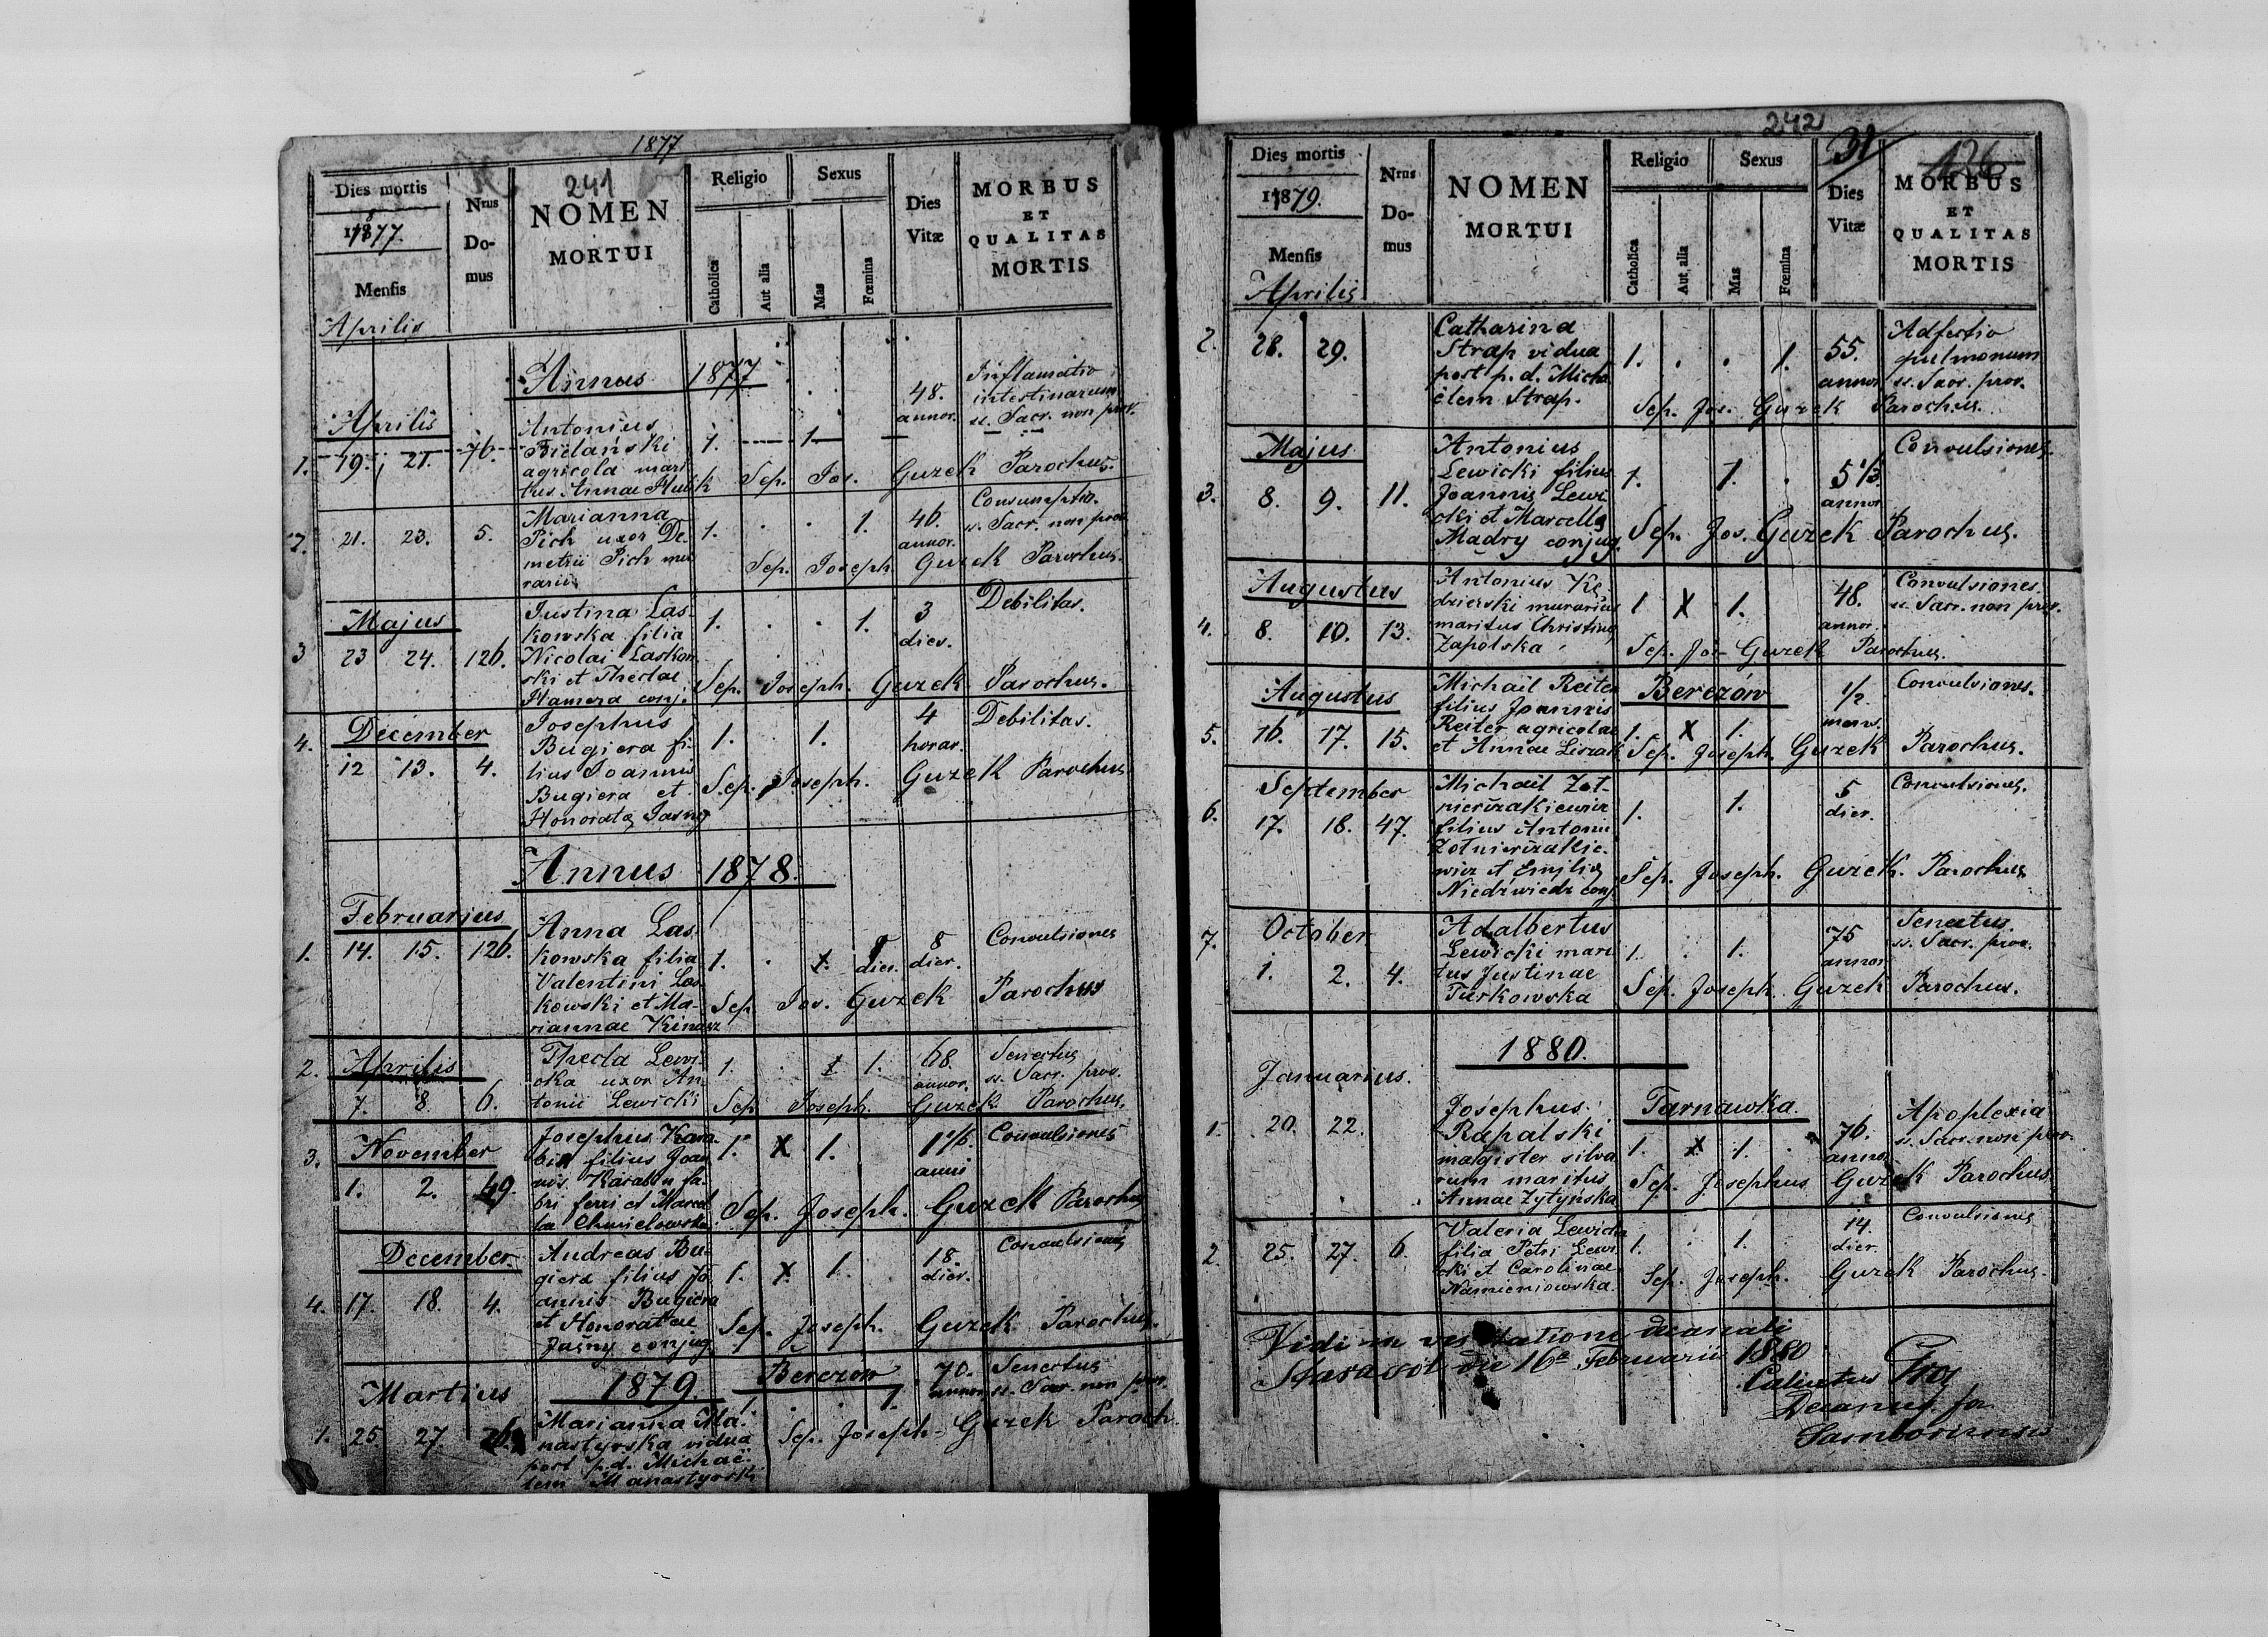 1877
241
Dies mortis
1877.
Mensis
Aprilis
Nrus Domus
NOMEN
MORTUI
Religio
Catholica
Aut alia
Sexus
Mas
Fœmina
Dies
Vitæ
MORBUS
ET
QUALITAS
MORTIS
Annus 1877
Aprilis
1. 19. 21. 76.
Antonius
Bielański
agricola mari
tus Annae Hulik
1. 1
48.
annor.
Inflamatio
intestinarum
ss. Sacr. non prov.
Sep. Jos. Guzek Parochus.
2. 21. 23. 5.
Marianna
Pich uxor De
metrii Pich mu
rarii
1. . . 1.
46.
annor.
Consumptio.
ss. Sacr. non prov.
Sep. Joseph Guzek Parochus.
Majus
3 23 24. 126.
Justina Las
kowska filia
Nicolai Laskow
ski et Theclae
Hamera conj.
1. . . 1.
3
dier.
Debilitas.
Sep. Joseph. Guzek Parochus.
December
4. 12 13. 4.
Josephus
Bugiera fi
lius Joannis
Bugiera et
Honoratę Jasny
1. 1.
4
horar.
Debilitas.
Sep. Joseph. Guzek Parochus
Annus 1878.
Februarius
1. 14. 15. 126.
Anna Las
kowska filia
Valentini Las
kowski et Ma-
riannae Kinasz
1. . 1. 8
dier.
8
dier.
Convulsiones
Sep. Jos. Guzek Parochus
Aprilis
2. 7. 8. 6.
Thecla Lewi
cka uxor An
tonii Lewicki
1. . 1 1.
68.
annor.
Senectus
ss. Sacr. prov.
Sep. Joseph. Guzek Parochus.
November
3. 1. 2. 49.
Josephus Kara
bin filius Joan
nis Karabin fa-
bri ferri et Marcel
la Chmielowska
1. X 1.
1 1/6
anni
Convulsiones
Sep. Joseph. Guzek Parochus
December.
4. 17. 18. 4.
Andreas Bu-
giera filius Jo
annis Bugiera
et Honoratae
Jasny conjug.
1. X 1.
18.
dier.
Convulsiones
Sep. Joseph. Guzek Parochus.
1879
Berezów
Martius
1. 25 27.
Marianna Ma
nastyrska vidua
post p.d. Michaë
lem Manastyrski
1. . . 1.
70.
annor.
Senectus
ss. Sacr. non prov.
Sep. Joseph. Guzek Paroch.
242
31
126
Dies mortis
1879.
Mensis
Aprilis
Nrus
Do-
mus
NOMEN
MORTUI
Religio
Catholica
Aut alia
Sexus
Mas
Fœmina
Dies
Vitæ
MORBUS
ET
QUALITAS
MORTIS
2. 28. 29.
Catharina
Strap vidua
post p. d. Micha
ëlem Strap.
1. . . 1.
55.
annor.
Adfectio
pulmonum
ss. Sacr. prov.
Sep. Jos. Guzek Parochus.
Majus
3. 8. 9. 11.
Antonius
Lewicki filius
Joannis Lewi
cki et Marcellę
Madry conjug.
1. 1. .
5 1/3.
annor
Convulsiones.
Sep. Jos. Guzek Parochus.
Augustus
4. 8. 10. 13.
Antonius Kę
dzierski murarius
maritus Christinę
Zapolska
1 X 1.
48.
annor.
Convulsiones.
ss. Sacr. non prov.
Sep. Jos Guzek Parochus.
Augustus
5. 16. 17. 15.
Michaël Reiter
filius Joannis
Reiter agricolae
et Annae Liszak
Berezów
1. X 1.
1/2
mens.
Convulsiones.
Sep. Joseph. Guzek Parochus.
September
6. 17. 18. 47.
Michaël Żoł-
nierżakiewicz
filius Antonii
Żołnierżakie-
wicz et Emilię
Niedźwiedz conj.
1. 1.
5
dier.
Convulsiones.
Sep. Joseph. Guzek. Parochus
October
7. 1. 2. 4.
Adalbertus
Lewicki mari
tus Justinae
Turkowska
1. . 1.
75
annor
Senectus.
ss. Sacr. prov.
Sep. Joseph. Guzek Parochus.
1880.
Januarius.
1. 20. 22.
Josephus
Rapalski
magister silva
rum maritus
Annae Żytyńska
Tarnawka.
1. X 1. .
76.
annor
Apoplexia
ss. Sacr. non prov.
Sep. Josephus Guzek Parochus
2. 25. 27. 6.
Valeria Lewicka
filia Petri Lewi
cki et Carolinae
Namieniowska.
1. . 1.
14.
dier.
Convulsiones
Sep. Joseph. Guzek Parochus.
Vidi in visitatione decanali
Starasol die 16a Februarii 1880
Decanus
Samboriensis